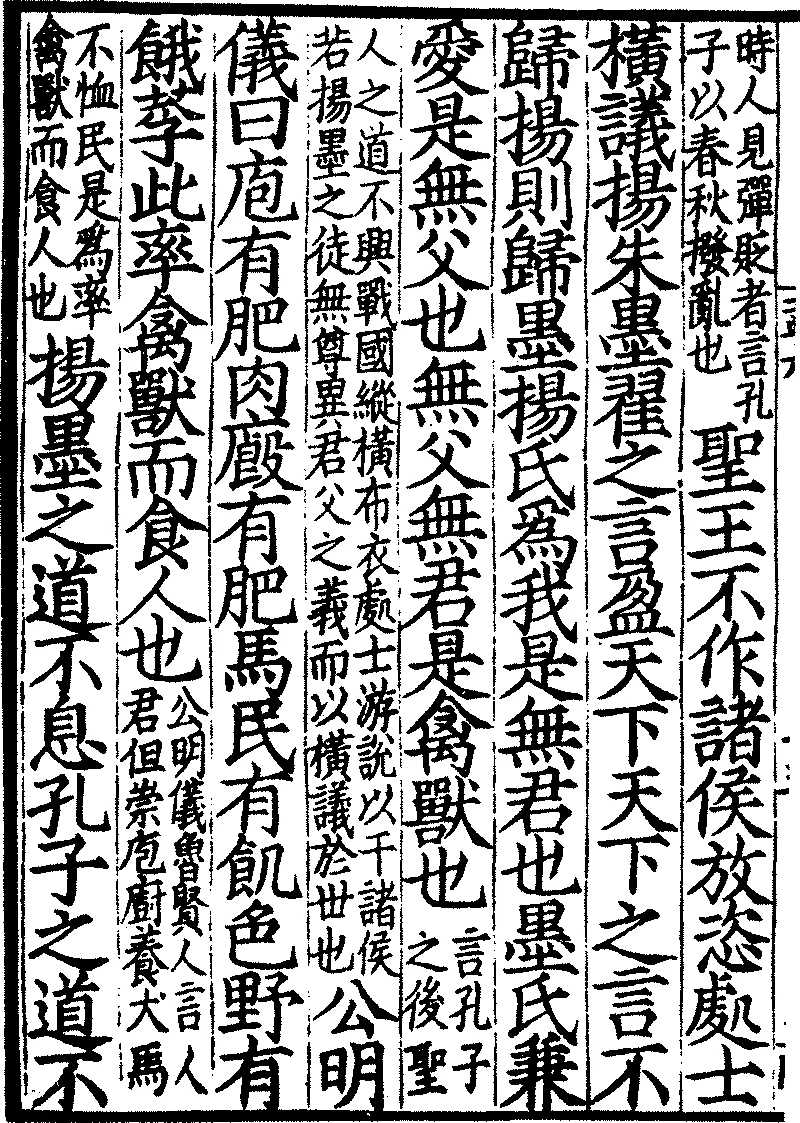 時人見彈貶者言孔
子以春秋撥亂也
聖王不作諸侯放恣處士
橫議揚朱墨翟之言盈天下天下之言不
歸揚則歸墨揚氏爲我是無君也墨氏兼
愛是無父也無父無君是禽獸也
言孔子
之後聖
人之道不興戰國縱橫布衣處士游說以干諸侯
若揚墨之徒無尊異君父之義而以橫議於世也
公明
儀曰庖有肥肉廄有肥馬民有飢色野有
餓莩此率禽獸而食人也
公明儀魯賢人言人
君但崇庖廚養犬馬
不恤民是爲率
禽獸而食人也
揚墨之道不息孔子之道不